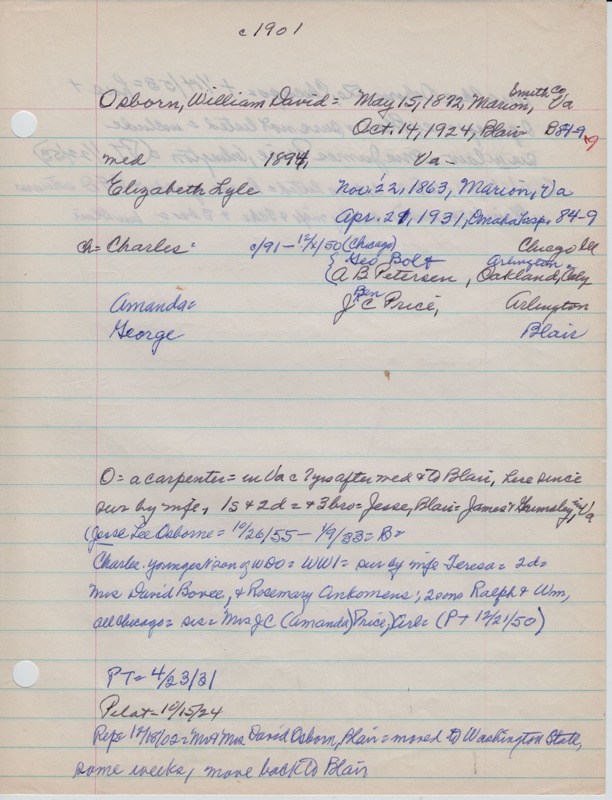 c1901
Smith Co,
Osborn, William David = May 15, 1872, Marion, Va
Oct. 14, 1924, Blair B84-9 9
med 1894, Va -
Elizabeth Lyle Nov. 22, 1863, Marion, Va
Apr. 21, 1931, Omaha hosp. 84-9
ch = Charles = c/91 - 12/ /50 (Chicago) Chicago Ill
Geo Bolt Arlington =
A B. Petersen, Oakland,
Ben
Amanda = J C Price, Arlington
George Blair
O = a carpenter = in Va c 7 yrs after med & to Blair, here since
sur by wife, 1s & 2d = & 3 bro = Jesse, Blair = James & in Va
(Jesse Lee Osborne = 10/26/55 - 1/9/33 = B =
Charles. youngest son of WDO = WW1 = sur by wife Teresa = 2d =
Mrs David Bovee, & Rosemary Ankomens; 2 sons Ralph & Wm,
all Chicago = sis = Mrs J C (Amanda) Price, Arl = (PT 12/21/50)
PT = 4/23/31
Pilot = 10/15/24
Rep = 12/18/02 = Mr & Mrs David Osborn, Blair = moved to Washington State,
some weeks, move back to Blair